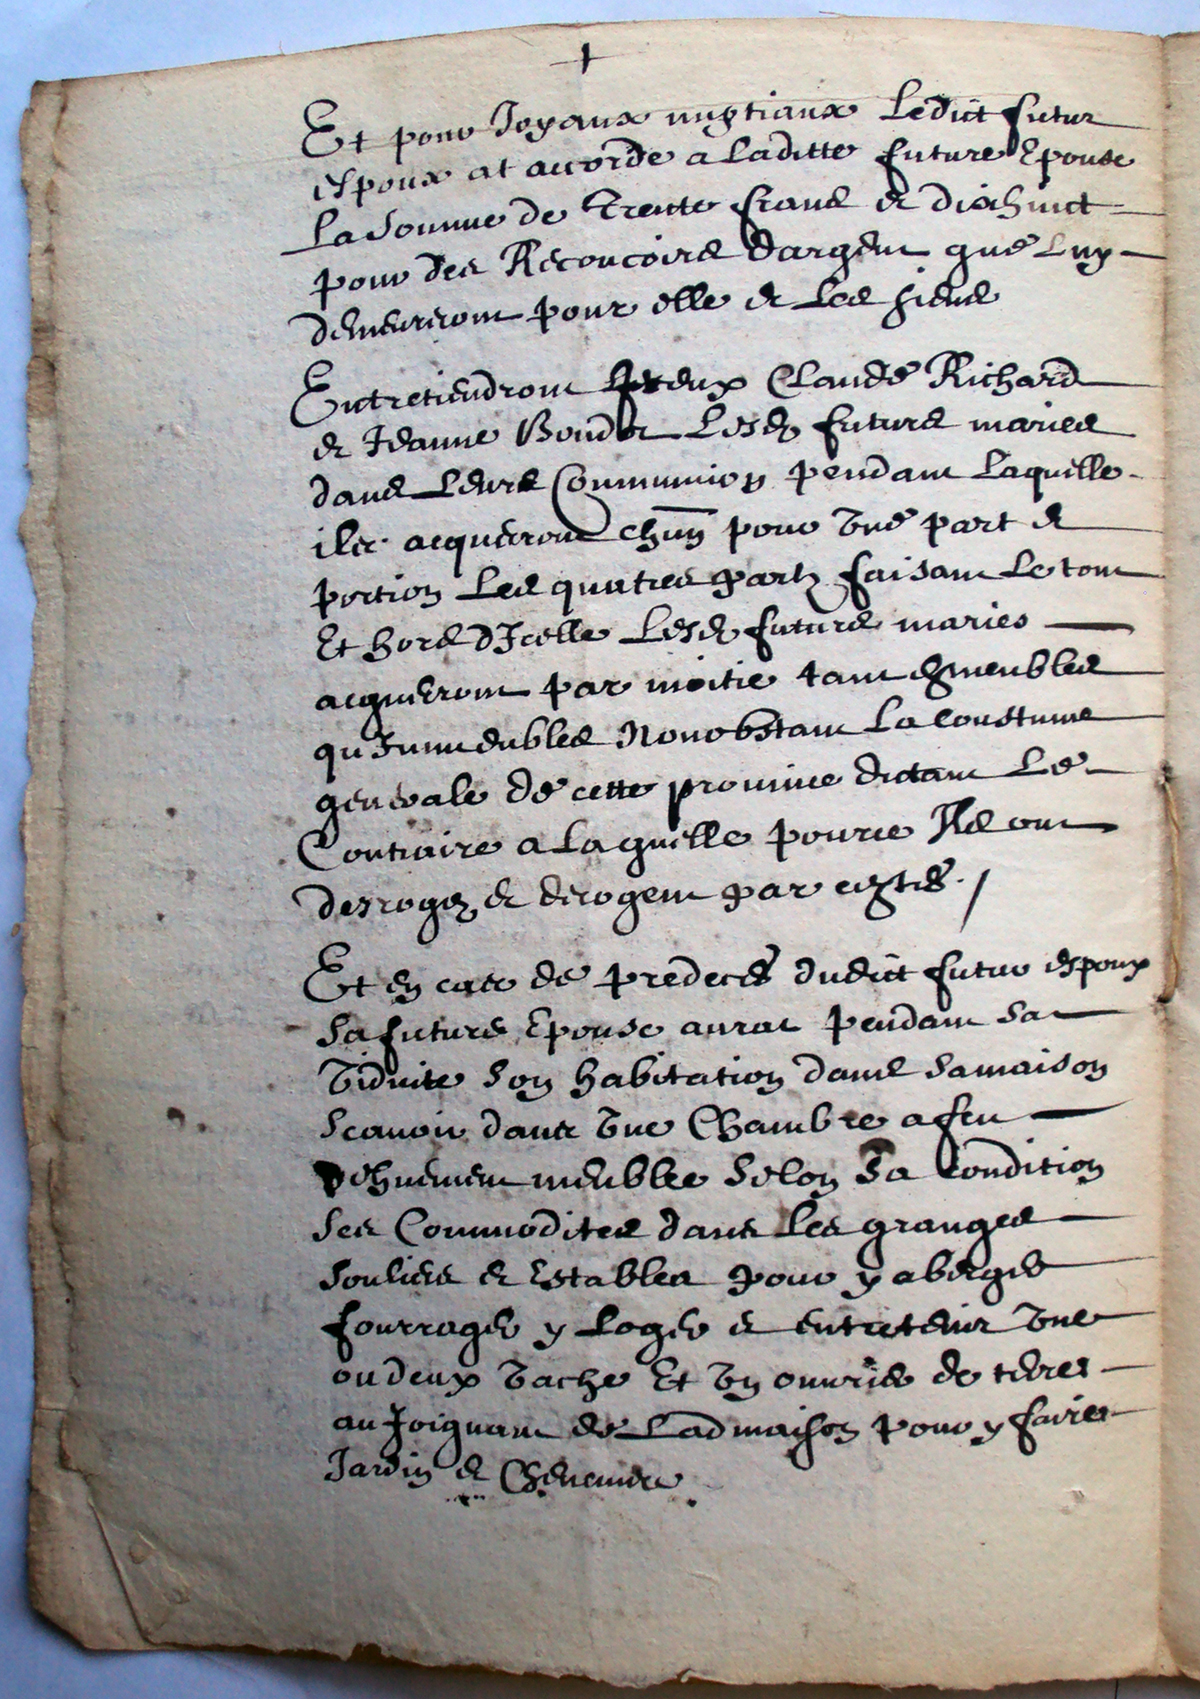 +
Et pour Joyaux nuptiaux Ledict futur
espoux at accorde a laditte future Epouse
La Somme de Trente frans et dixhuict
pour des Recouvoirs dargent que Luy
demeureront pour elle et Les siens
Entretiendront Claude Richard
et Jeanne Lesd futurs maries
dans Leurs Communion pendant Laquelle
ils acqueront chun pour Une part et
portion Les quatres parts faisant Le tout
Et hors dJcelle Lesd futurs maries
acqueront par moitie tant en meubles
qu Jmmeubles Nonobstant La Coustume
generale de cette province dictant Le
Contraire a Laquelle pource Ils ont
desrogez et derogent par cestes /
Et en cas de predeces dudict futur espoux
Sa future Epouse aurat pendant Sa
Viduite Son habitation dans Sa maison
Scavoir dans Une Chambre a feu
dehuement meublee Selon Sa Condition
Ses Commodites dans Les granges
Souliers et Estables pour y aberger
fourrages y Loger et entretenir Une
ou deux Vache Et Un ouvrier de terres
au Joignant de Lad maison pour y faire
Jardin et Cheneviere